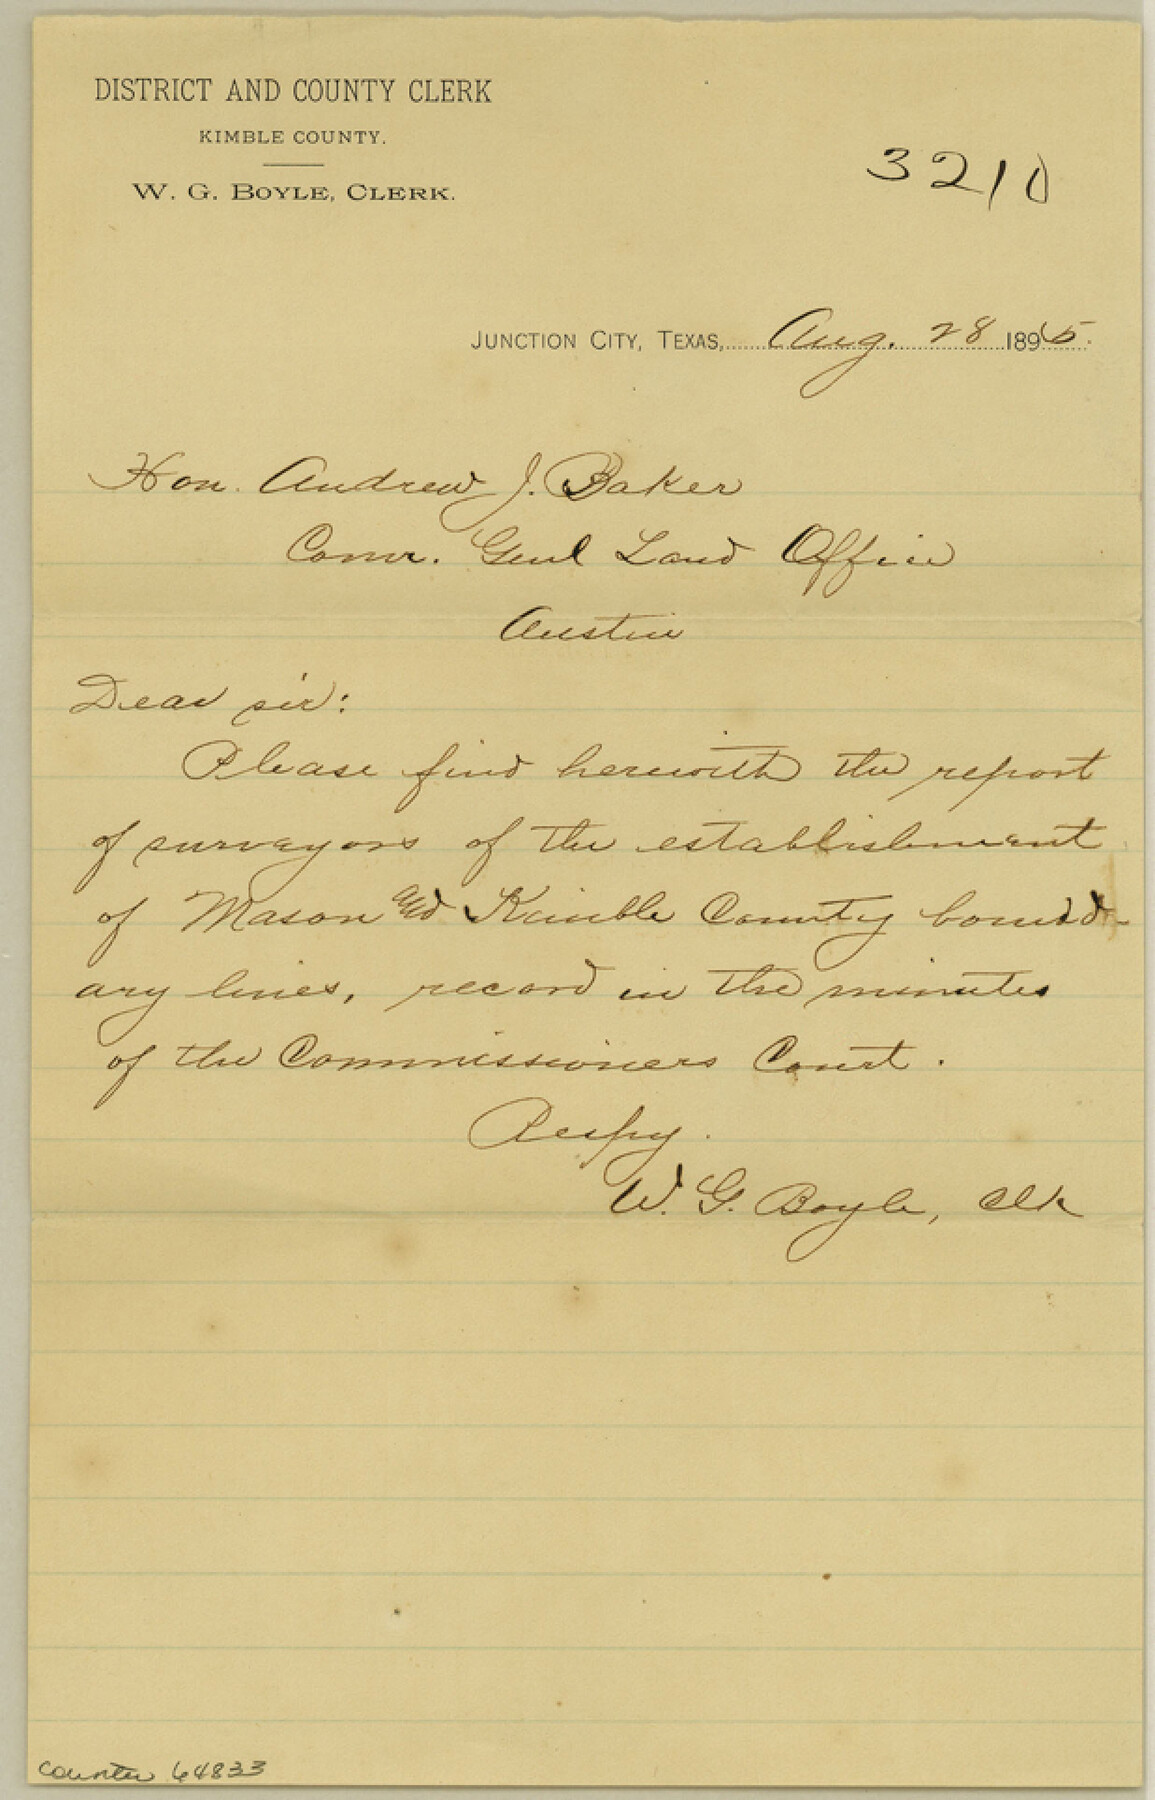 DISTRICT AND COUNTY CLERK
KIMBLE COUNTY.
W. G. BOYLE, CLERK.
3210
JUNCTION CITY, TEXAS, Aug. 28 1895.
Hon. Andrew J. Baker
Comr. Genl Land Office
Austin
Dear sir:
Please find herewith the report
of surveyors of the establishment
of Mason and Kimble County bound-
ary lines, record in the minutes
of the Commissioners Court.
Respy.
W. G. Boyle, Clk
counter 64833